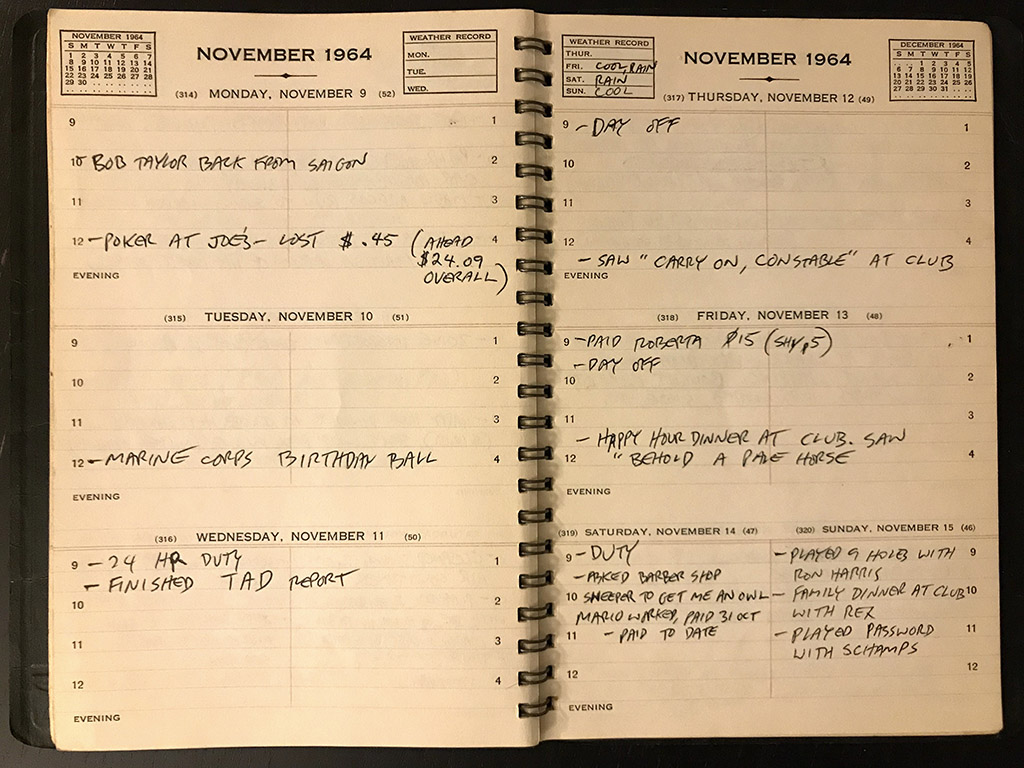 NOVEMBER 1964
S M T W T F S
1 2 3 4 5 6 7
8 9 10 11 12 13 14
15 16 17 18 19 20 21
22 23 24 25 26 27 28
29 30
NOVEMBER 1964
WEATHER RECORD
MON.
TUE.
WED.
(314) MONDAY, NOVEMBER 9 (52)
9 1
10 BOB TAYLOR BACK FROM SAIGON 2
11 3
12 - POKER AT JOE'S - LOST $.45 (AHEAD 4
$24.09
OVERALL)
EVENING
(315) TUESDAY, NOVEMBER 10 (51)
9 1
10 2
11 3
12 - MARINE CORPS BIRTHDAY BALL 4
EVENING
(316) WEDNESDAY, NOVEMBER 11 (50)
9 - 24 HR DUTY 1
- FINISHED TAD REPORT
10 2
11 3
12 4
EVENING
WEATHER RECORD
THUR.
FRI. COOL, RAIN
SAT. RAIN
SUN. COOL
NOVEMBER 1964
DECEMBER 1964
S M T W T F S
1 2 3 4 5
6 7 8 9 10 11 12
13 14 15 16 17 18 19
20 21 22 23 24 25 26
27 28 29 30 31
(317) THURSDAY, NOVEMBER 12 (49)
9 - DAY OFF 1
10 2
11 3
12 4
- SAW "CARRY ON, CONSTABLE" AT CLUB
EVENING
(318) FRIDAY, NOVEMBER 13 (48)
9 - PAID ROBERTA $15 ( 5) 1
- DAY OFF
10 2
11 3
- HAPPY HOUR DINNER AT CLUB. SAW
12 "BEHOLD A PALE HORSE 4
EVENING
(319) SATURDAY, NOVEMBER 14 (47)
9 - DUTY
- ASKED BARBER SHOP
10 SWEEPER TO GET ME AN OWL
MARIO WORKED, PAID 31 OCT
11 - PAID TO DATE
12
EVENING
(320) SUNDAY, NOVEMBER 15 (46)
- PLAYED 9 HOLES WITH 9
RON HARRIS
- FAMILY DINNER AT CLUB 10
WITH REX
- PLAYED PASSWORD 11
WITH SCHAMPS
12